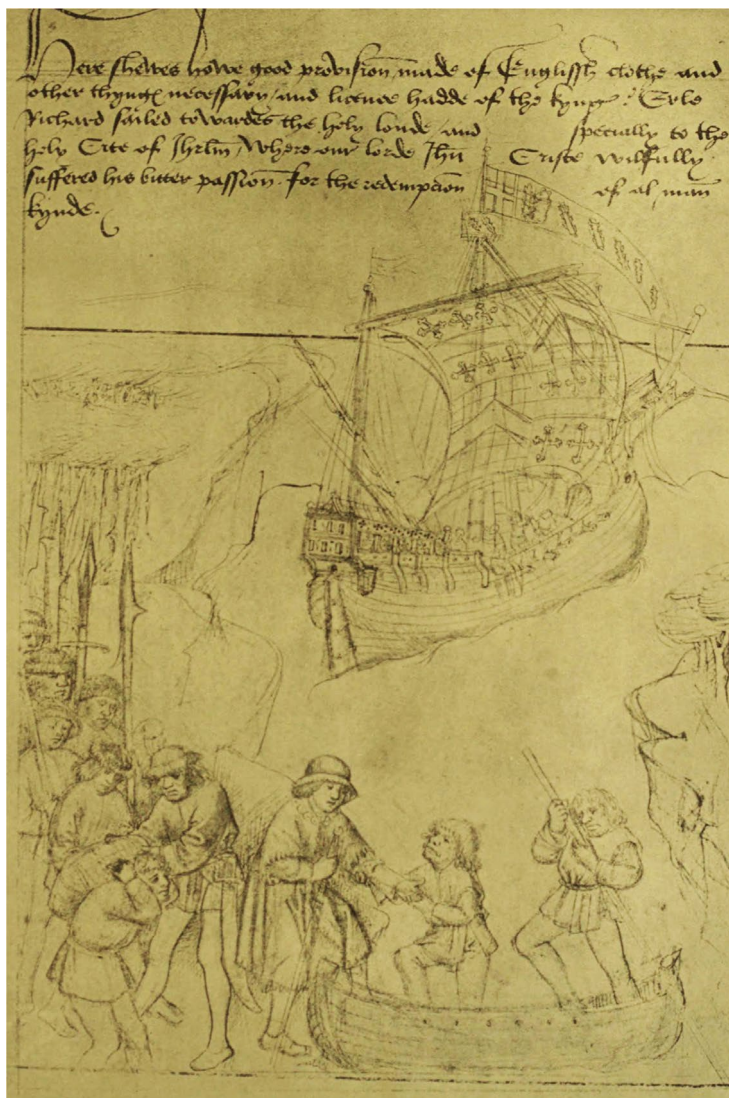 Here shewes howe good provision made of Englissh clothe and
other thynges necessary and licence hadde of the kyng : Erle
Richard sailed towardes the holy londe and specially to the
holy Cite of Jhrlm, Where our lorde Jhu Criste wilfully
suffered his bitter passion for the redempcion of al man
kynde.